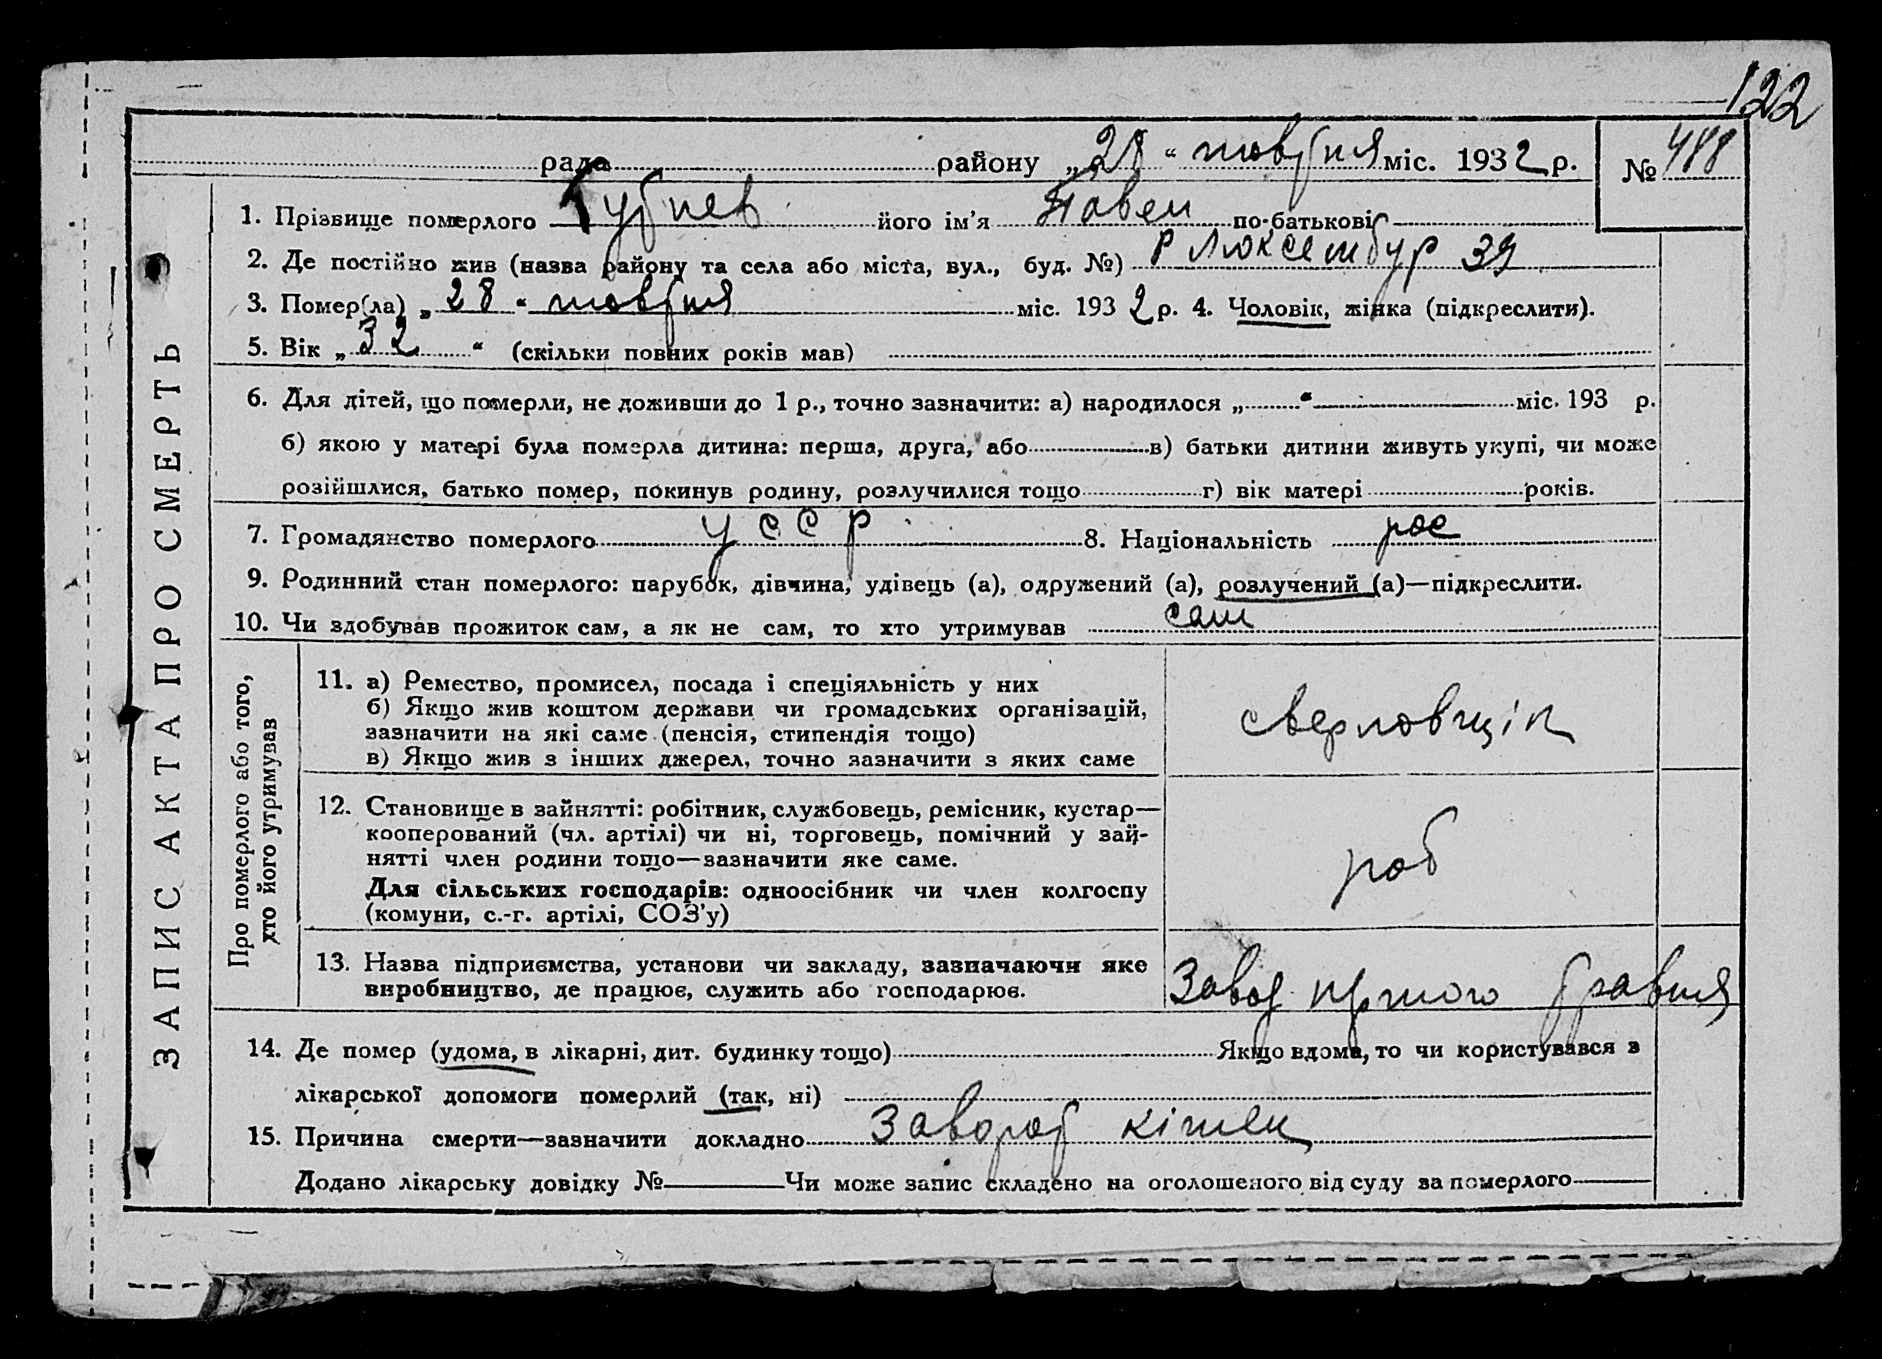 122
рада району „28“ жовтня міс. 1932 р. № 488
1. Прізвище померлого Губнев його ім’я Павел по-батькові
2. Де постійно жив (назва району та села або міста, вул., буд. №) Р Люксембур 39
3. Помер(ла) „28“ жовтня міс. 1932 р. 4. Чоловік, жінка (підкреслити).
5. Вік „32“ (скільки повних років мав)
6. Для дітей, що померли, не доживши до 1 р., точно зазначити: а) народилося „ “ міс. 193 р.
б) якою у матері була померла дитина: перша, друга, або в) батьки дитини живуть укупі, чи може
розійшлися, батько помер, покинув родину, розлучилися тощо г) вік матері років.
7. Громадянство померлого УССР 8. Національність рос
9. Родинний стан померлого: парубок, дівчина, удівець (а), одружений (а), розлучений (а)—підкреслити.
10. Чи здобував прожиток сам, а як не сам, то хто утримував сам
ЗАПИС АКТА ПРО СМЕРТЬ
Про померлого або того,
хто його утримував
11. а) Ремество, промисел, посада і спеціяльність у них
б) Якщо жив коштом держави чи громадських організацій,
зазначити на які саме (пенсія, стипендія тощо)
в) Якщо жив з інших джерел, точно зазначити з яких саме
сверловщік
12. Становище в зайнятті: робітник, службовець, ремісник, кустар—
кооперований (чл. артілі) чи ні, торговець, помічний у зай-
нятті член родини тощо—зазначити яке саме.
Для сільських господарів: одноосібник чи член колгоспу
(комуни, с.-г. артілі, СОЗ’у)
роб
13. Назва підприємства, установи чи закладу, зазначаючи яке
виробництво, де працює, служить або господарює.
Завод
14. Де помер (удома, в лікарні, дит. будинку тощо) Якщо вдома, то чи користувався з
лікарської допомоги померлий (так, ні)
15. Причина смерти—зазначити докладно Заворот кішек
Додано лікарську довідку № Чи може запис складено на оголошеного від суду за померлого